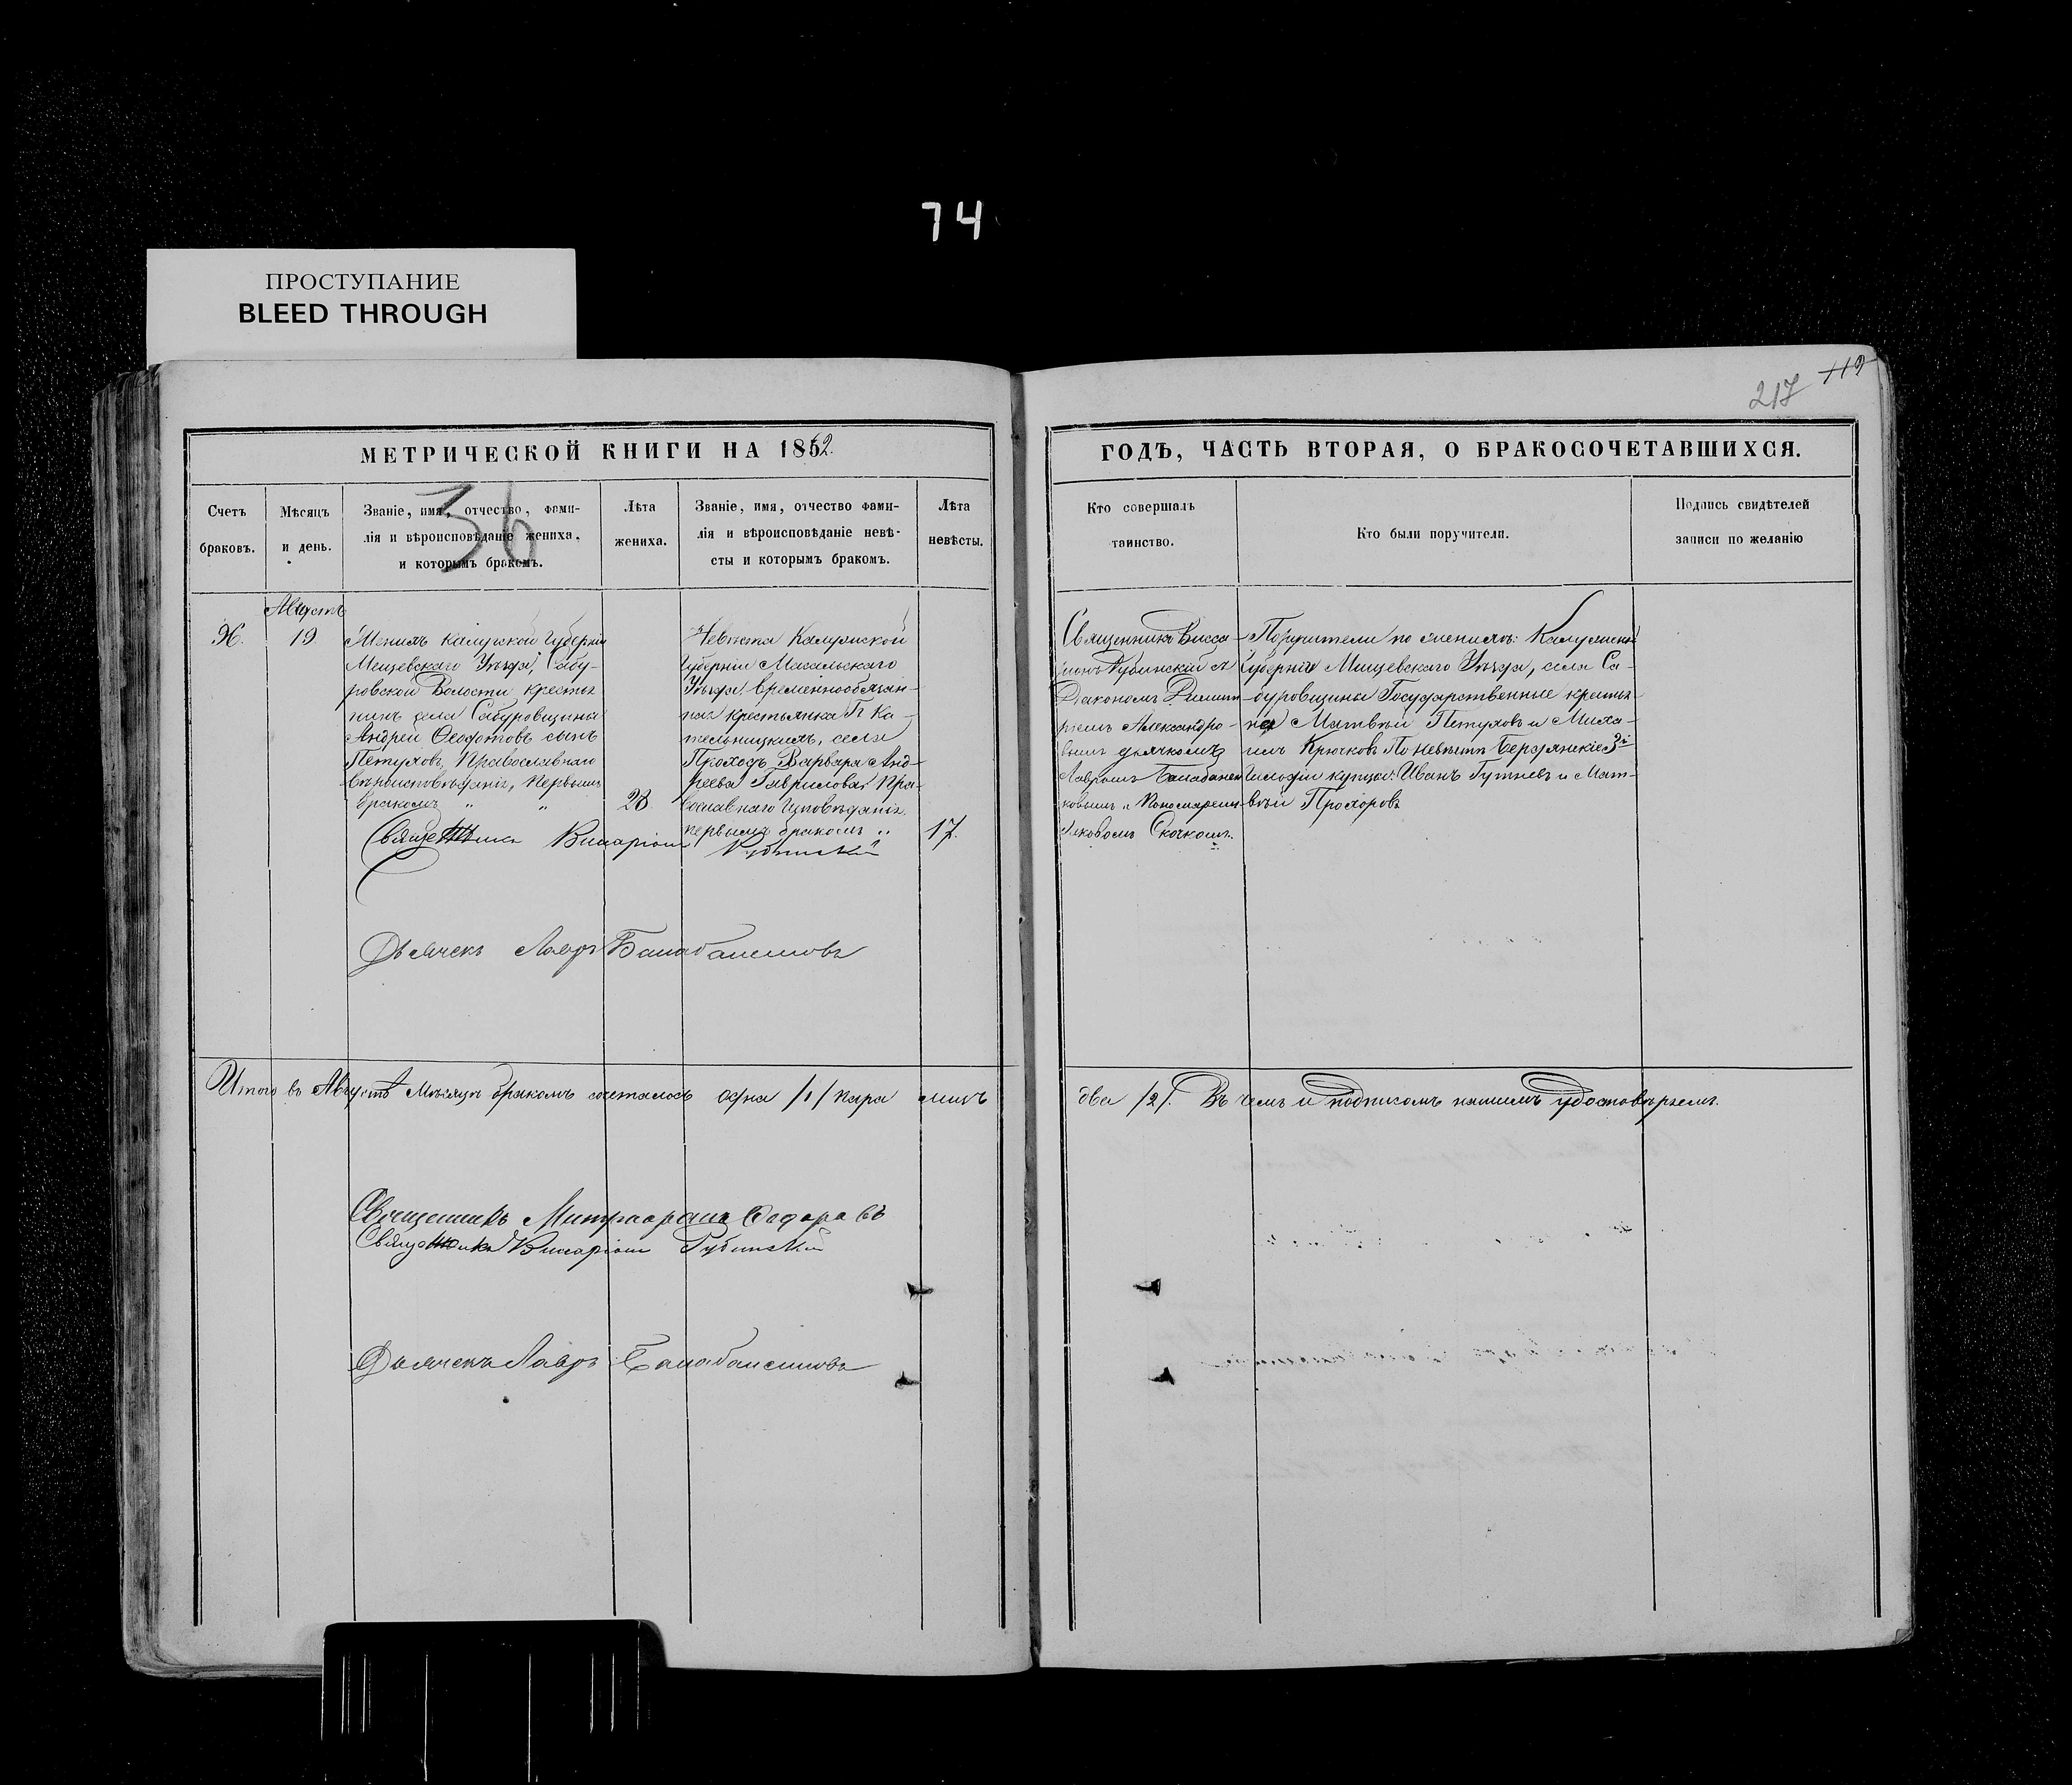 74
ПРОСТУПАНИЕ
BLEED THROUGH
217 112
МЕТРИЧЕСКОЙ КНИГИ НА 1862.
ГОДЪ, ЧАСТЬ ВТОРАЯ, О БРАКОСОЧЕТАВШИХСЯ.
36
Счетъ
браковъ.
Мѣсяцъ
и день.
Званіе, имя, отчество, фами-
лія и вѣроисповѣданіе жениха,
и которымъ бракомъ.
Лѣта
жениха.
Званіе, имя, отчество фами-
лія и вѣроисповѣданіе невѣ-
сты и которымъ бракомъ.
Лѣта
невѣсты.
Кто совершалъ
таинство.
Кто были поручители.
Подпись свидѣтелей
записи по желанію
Августъ
36.
19
Женихъ Калужской Губерніи
Мещевскаго Уѣзда, Сабу-
ровской Волости крестья
нинъ села Сабуровщины
Андрей Ѳеодотовъ сынъ
Петуховъ, Православнаго
вѣроисповѣданія, первымъ
бракомъ " "
23
Невѣста Калужской
Губерніи Масальскаго
Уѣзда временнообязан-
ная крестьянка Г.
села
Проходъ Варвара Анд-
реева Гаврилова, Пра-
вославнаго Исповѣданія
первымъ бракомъ "
17.
Священникъ Висса-
ріонъ Рубинскій съ
Діакономъ
Александро-
вымъ дьячкомъ
Лавромъ Балабанен
ковымъ и Пономаремъ
Яковомъ Скочкомъ.
Поручители по женихѣ: Калужской
Губерніи Мищевскаго Уѣзда, села Са-
буровщины Государственные крестья-
не Матвѣй Петуховъ и Миха-
илъ Крючковъ По невѣстѣ Бердянскіе 3й
Гильдіи купцы: Иванъ Гутневъ и Мат-
вѣй Прохоровъ
Священникъ Виссаріонъ Рубинскій
Дьячекъ Лавръ Балабаненковъ
Итого въ Августѣ Мѣсяцѣ бракомъ сочеталось одна /1/ пара лицъ два /2/. Въ чемъ и подписомъ нашимъ удостовѣряемъ.
Священникъ Митрофанъ Ѳедоровъ
Священникъ Виссаріонъ Рубинскій
Дьячекъ Лавръ Балабаненковъ